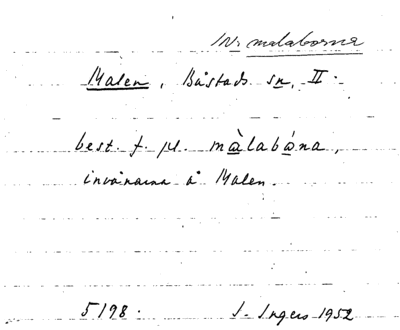 Inb. malaborna
Malen, Båstads sn, II.
best. f. pl. màlabána,
invånarna å Malen.
5198. I. Ingers 1952